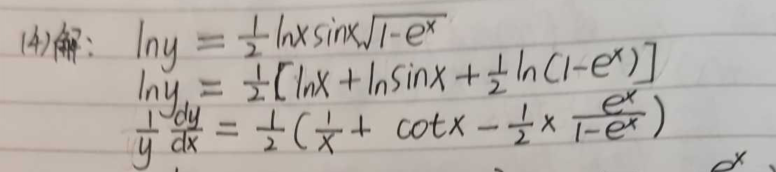 (4)解: lny = 1/2 lnx sinx√(1-e^x)
lny = 1/2[lnx + lnsinx + 1/2 ln(1-e^x)]
1/y dy/dx = 1/2(1/x + cotx - 1/2 × e^x/(1-e^x))
e^x